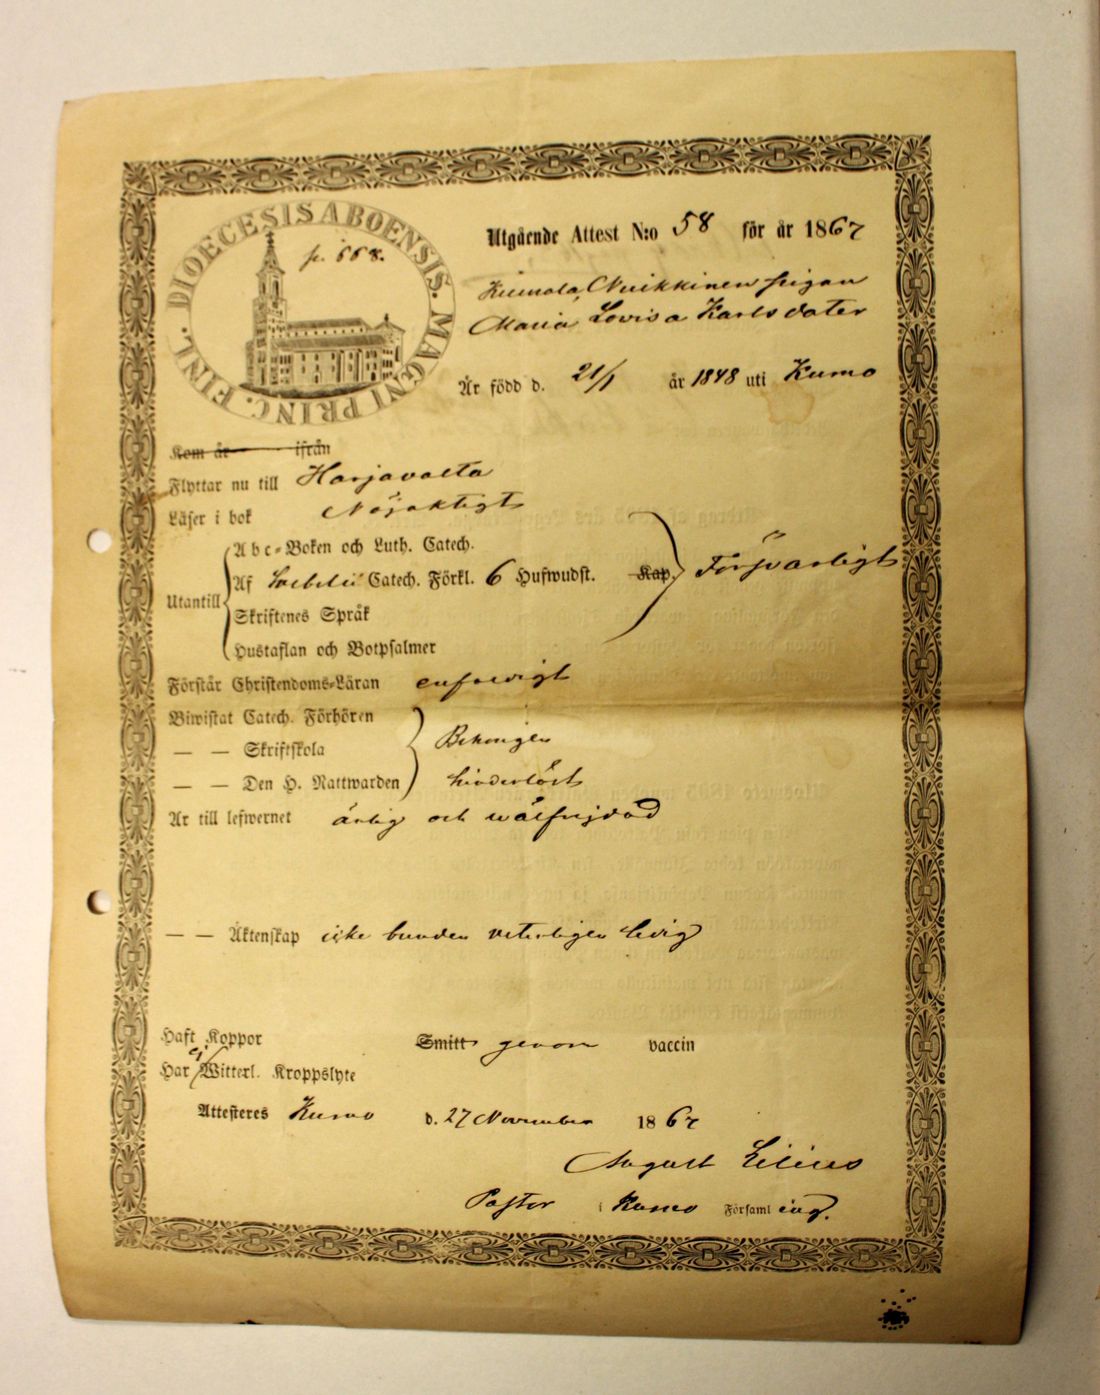 DIOECESIS ABOENSIS. MAGNI PRINC. FINL.
p. 668.
Utgående Attest N:o 58 för år 1867
Kuinola, Nuikkinen pigan
Maria Lovisa Karlsdoter
Är född d. 21/1 år 1848 uti Kumo
Kom år ifrån
Flyttar nu till Harjavalta
Läser i bok Nöjaktigt
Abc-Boken och Luth. Catech.
Utantill Af Sebelii Catech. Förkl. 6 Hufwudst. Kap. Försvarligt
Skriftenes Språk
Hustaflan och Botpsalmer
Förstår Christendoms-Läran enfaldigt
Biwistat Catech. Förhören
— — Skriftskola Behörigen
— — Den H. Nattwarden hinderlöst
Är till lefwernet ärlig och wälfrejdad
— — Äktenskap icke bunden veterligen ledig
Haft Koppor Smitt genom vaccin
Har ej Witterl. Kroppslyte
Attesteres Kumo d. 27 November 1867
August Lilius
Pastor i Kumo Församling.